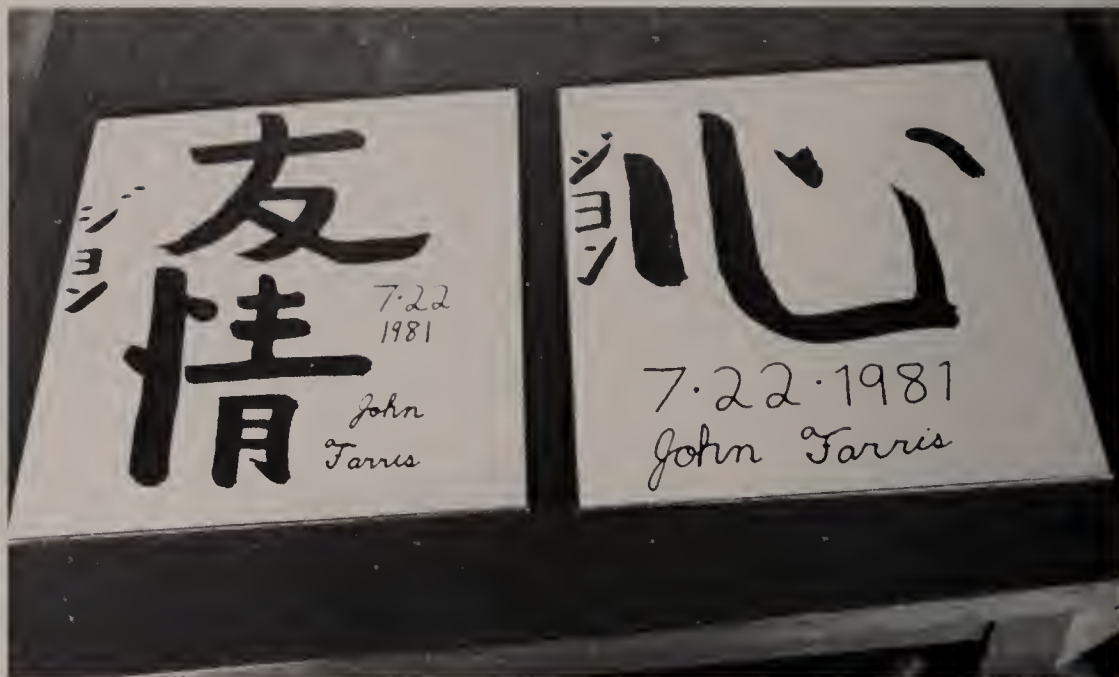 友情
ジョン
7·22
1981
John
Farris
心
ジョン
7·22·1981
John Farris